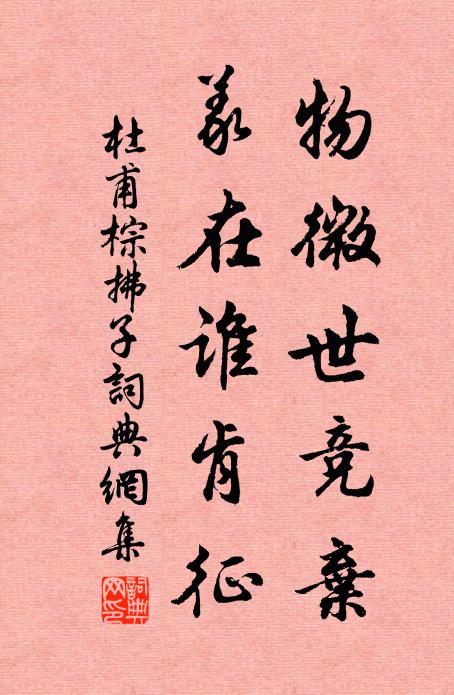 物微世竞棄
義在谁肯征
杜甫棕拂子詞典網集
詞典網印